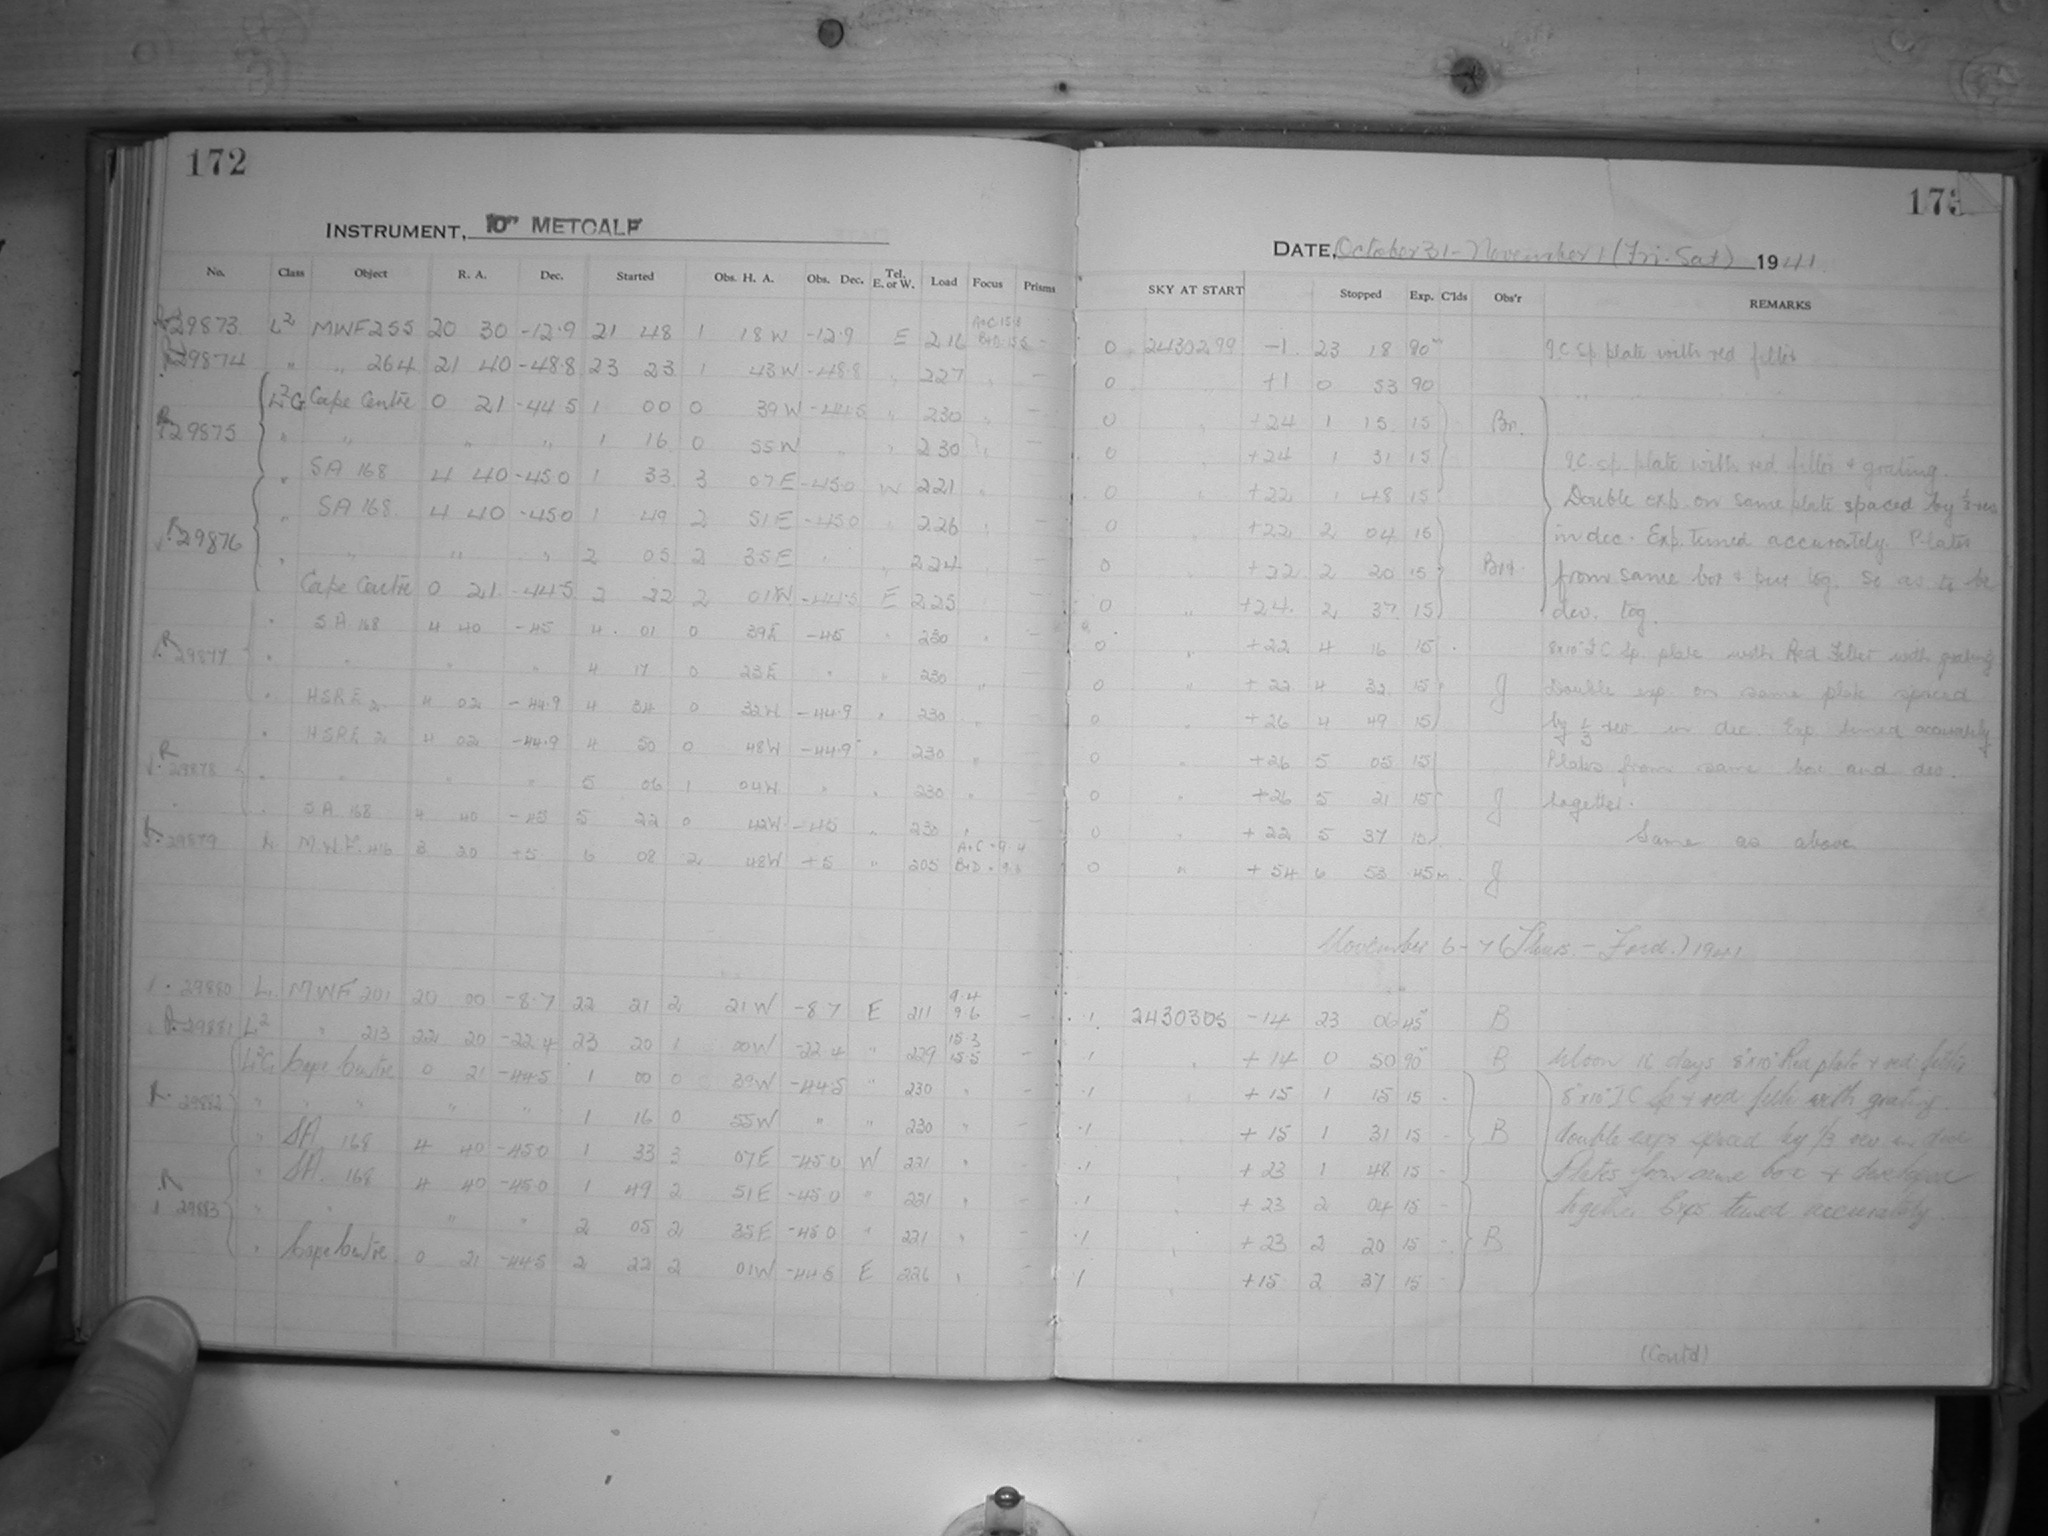 172
INSTRUMENT, 10" METCALF
No. Class Object R. A. Dec. Started Obs. H. A. Obs. Dec. Tel. E. or W. Load Focus Prisms
29873 L2 MWF 255 20 30 -12.9 21 48 1 18 W -12.9 E 216
29874 " " 264 21 40 -48.8 23 23 1 43 W -48.8 " 227 " —
L2G Cape Centre 0 21 -44.5 1 00 0 39 W -44.5 " 230 " —
29875 " " " " 1 16 0 55 W " " 230 " —
" SA 168 4 40 -45.0 1 33 3 07 E -45.0 W 221 " —
" SA 168 4 40 -45.0 1 49 2 51 E -45.0 " 226 " —
29876 " " " " 2 05 2 35 E " " 224 " —
Cape Centre 0 21 -44.5 2 22 2 01 W -44.5 E 225 —
" SA 168 4 40 -45 4 01 0 39 E -45 " 230 " —
29877 " " " " 4 17 0 23 E " " 230 " —
" HSRE 2 4 02 -44.9 4 34 0 32 W -44.9 " 230 " —
" HSRE 2 4 02 -44.9 4 50 0 48 W -44.9 " 230 " —
29878 " " " " 5 06 1 04 W " " 230 " —
" SA 168 4 40 -45 5 22 0 42 W -45 " 230 " —
29879 L M.W.F. 416 3 20 +5 6 08 2 48 W +5 " 205 A+C = 9.4 B+D = 9.6
29880 L MWF 201 20 00 -8.7 22 21 2 21 W -8.7 E 211 9.4 9.6 —
29881 L2 " 213 22 20 -22.4 23 20 1 00 W -22.4 " 229 15.3 15.5 —
L2G Cape Centre 0 21 -44.5 1 00 0 39 W -44.5 " 230 " —
29882 " " " " " 1 16 0 55 W " " 230 " —
" SA. 168 4 40 -45.0 1 33 3 07 E -45.0 W 221 " —
" SA. 168 4 40 -45.0 1 49 2 51 E -45.0 " 221 " —
29883 " " " " 2 05 2 35 E -45.0 " 221 " —
" Cape Centre 0 21 -44.5 2 22 2 01 W -44.5 E 226 " —
173
DATE, October 31 - November 1 (Fri. Sat) 1941
SKY AT START Stopped Exp. C'lds Obs'r REMARKS
0 2430299 -1 23 18 90m IC Sp plate with red filter
0 +1 0 53 90
0 +24 1 15 15 Br.
0 +24 1 31 15 IC sp. plate with red filter + grating.
0 +22 1 48 15 Double exp. on same plate spaced by 1/3 rev
0 +22 2 04 15 in dec. Exp. timed accurately. Plates
0 +22 2 20 15 from same box + put tog. so as to be
0 " +24 2 37 15 dev. tog.
0 " +22 4 16 15 8x10" IC Sp. plate with Red Filter with grating
0 " +22 4 32 15 J Double exp. on same plate spaced
0 " +26 4 49 15 by 1/3 rev. in dec. Exp. timed accurately
0 " +26 5 05 15 Plates from same box and dev.
0 " +26 5 21 15 J together.
0 " +22 5 37 15 Same as above
0 " +54 6 53 45m J
November 6-7 (Thurs. - ) 1941
1 2430305 -14 23 06 45 B
1 +14 0 50 90 B Moon days 8"x10" Red plate + red filter
1 +15 1 15 15 8"x10" IC Sp + red filter with grating.
1 +15 1 31 15 B double exps spaced by 1/3 rev in dec
1 +23 1 48 15 Plates from same box + developed
1 +23 2 04 15 together Exps timed accurately
1 +23 2 20 15 B
1 +15 2 37 15
(Contd)